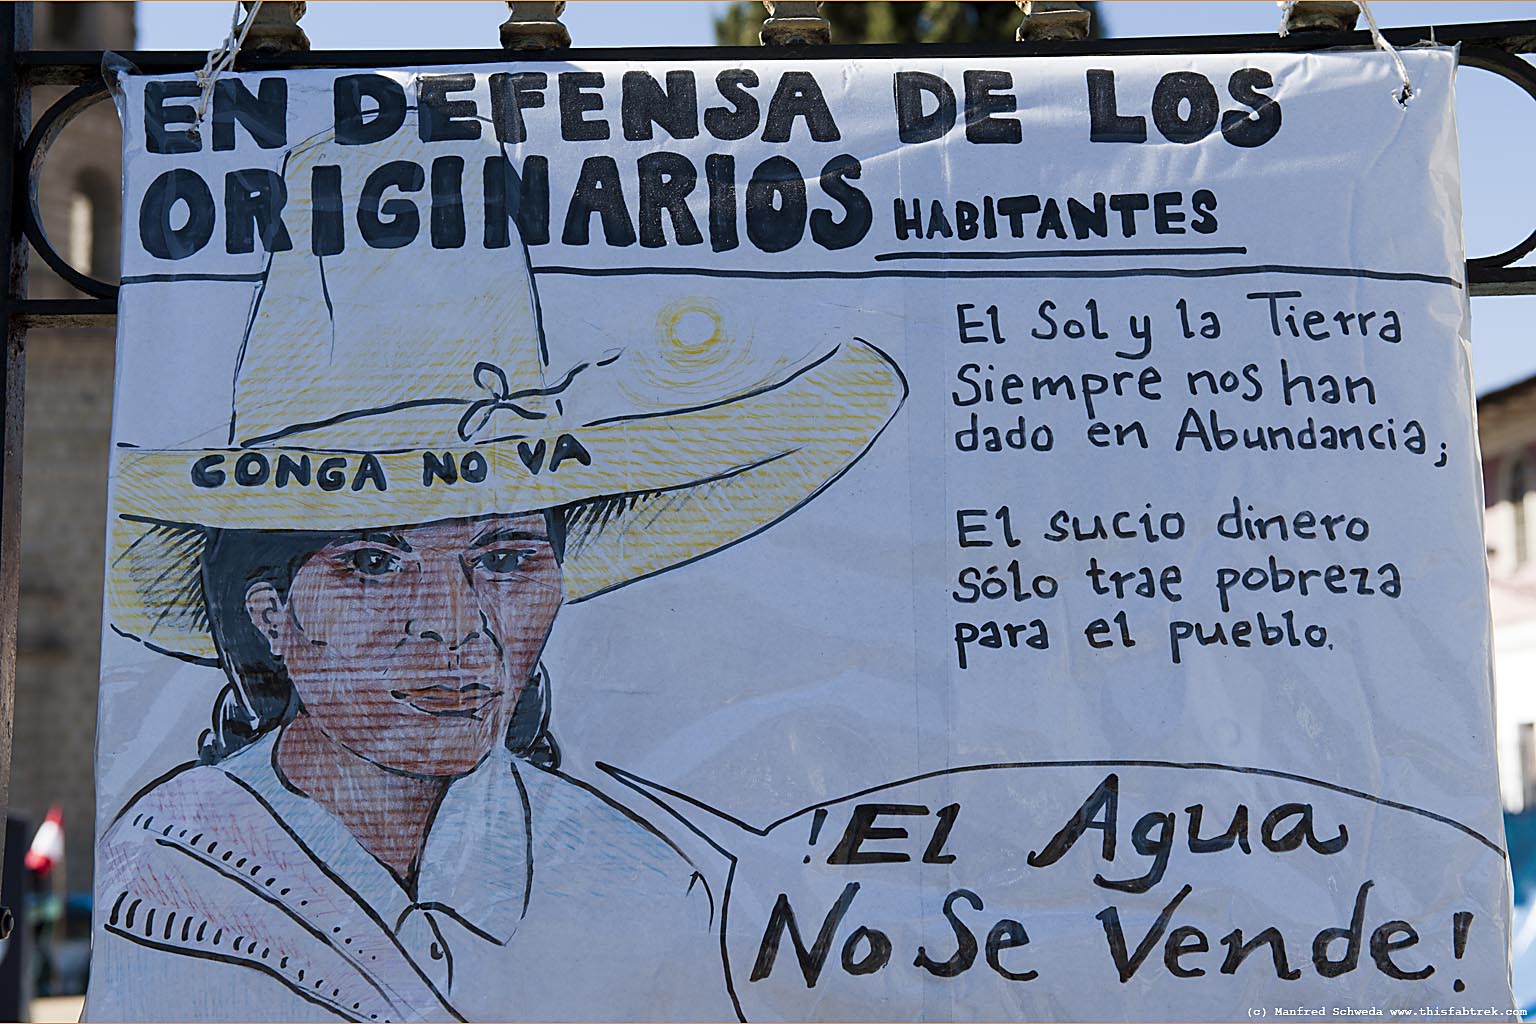 EN DEFENSA DE LOS
ORIGINARIOS HABITANTES
El Sol y la Tierra
Siempre nos han
dado en Abundancia;
CONGA NO VA
El sucio dinero
sólo trae pobreza
para el pueblo.
!El Agua
No Se Vende!
(c) Manfred Schweda www.thisfabtrek.com